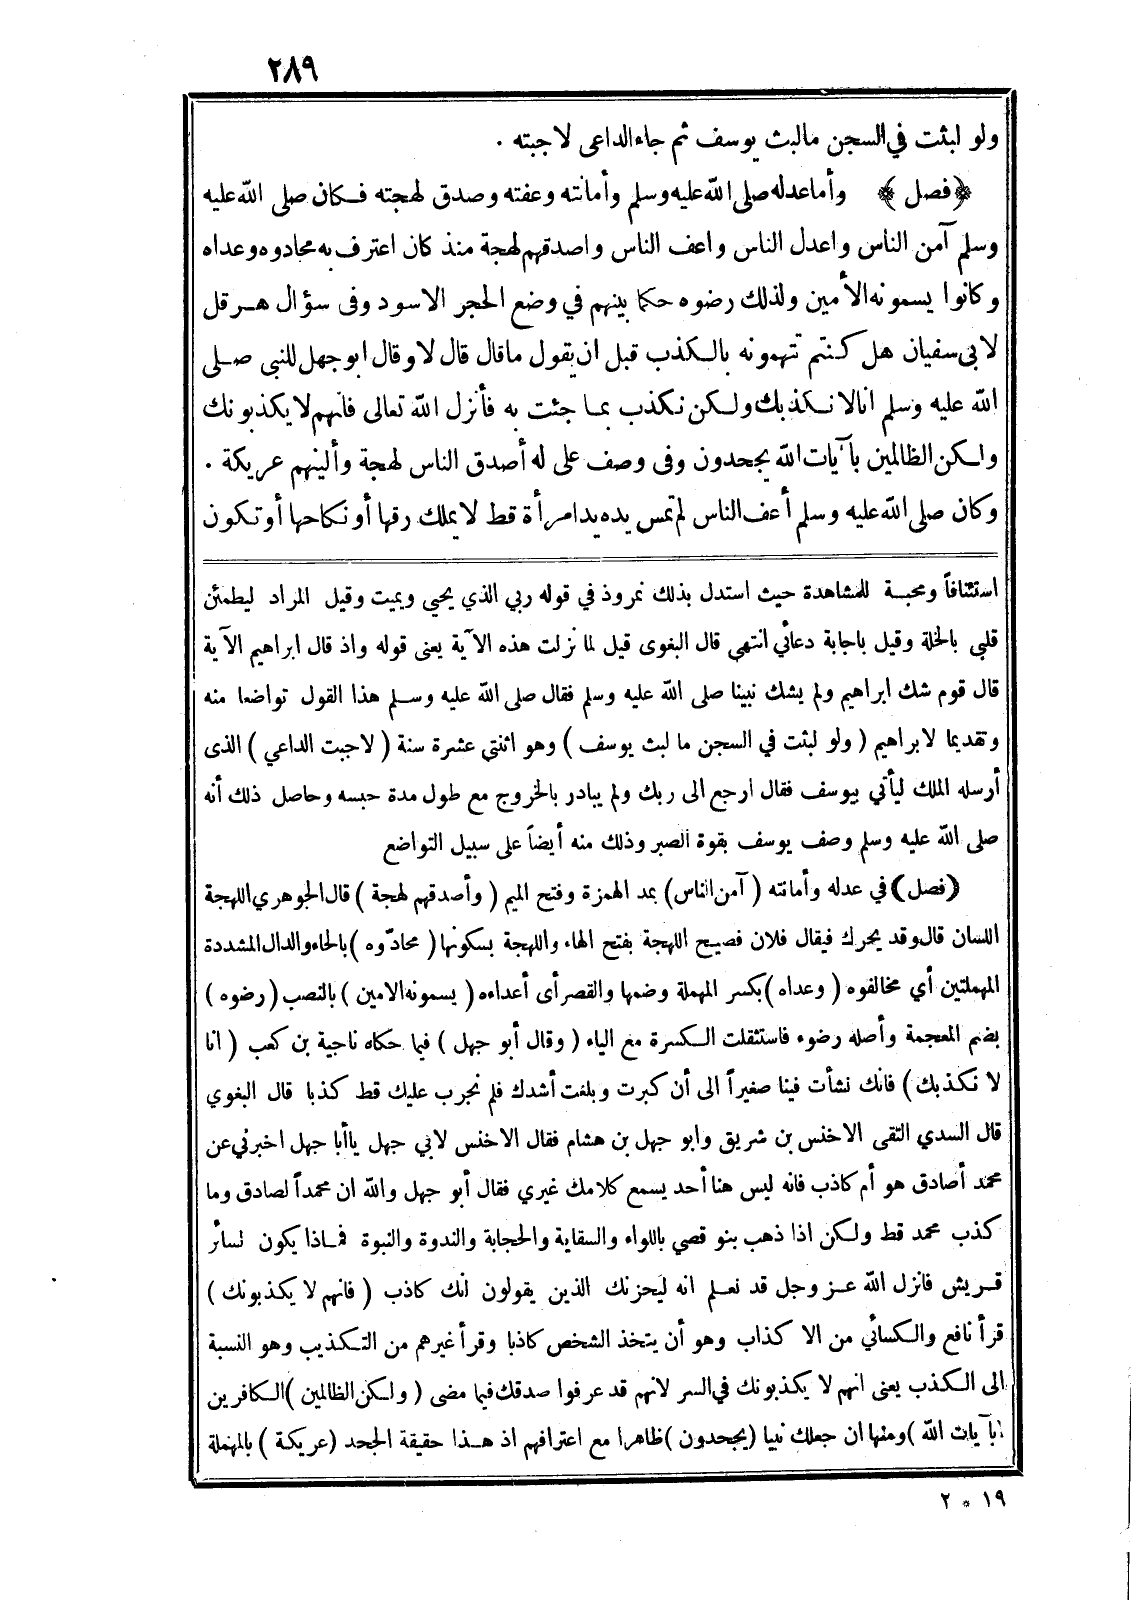 ٢٨٩
ولو لبثت في السجن مالبث يوسف ثم جاء الداعى لاجبته .
﴿ فصل ﴾ وأماعدله صلى الله عليه وسلم وأمانته وعفته وصدق لهجته فكان صلى الله عليه
وسلم آمن الناس واعدل الناس واعف الناس واصدقهم لهجة منذ كان اعترف به محادوه وعداه
وكانوا يسمونه الأمين ولذلك رضوه حكما بينهم في وضع الحجر الاسود وفى سؤال هرقل
لابى سفيان هل كنتم تتهمونه بالكذب قبل ان يقول ماقال قال لا وقال ابو جهل للنبي صلى
الله عليه وسلم انالا نكذبك ولكن نكذب بما جئت به فأنزل الله تعالى فانهم لا يكذبونك
ولكن الظالمين بآيات الله يجحدون وفى وصف على له أصدق الناس لهجة وألينهم عريكة .
وكان صلى الله عليه وسلم أعف الناس لم تمس يده يد امرأة قط لا يملك رقها أو نكاحها أو تكون
استئنافاً ومحبة للمشاهدة حيث استدل بذلك نمروذ في قوله ربي الذي يحيي ويميت وقيل المراد ليطمئن
قلبي بالخلة وقيل باجابة دعائي انتهي قال البغوى قيل لما نزلت هذه الآية يعنى قوله واذ قال ابراهيم الآية
قال قوم شك ابراهيم ولم يشك نبينا صلى الله عليه وسلم فقال صلى الله عليه وسلم هذا القول تواضعا منه
وتقديما لابراهيم ( ولو لبثت في السجن ما لبث يوسف ) وهو اثنتي عشرة سنة ( لاجبت الداعي ) الذى
أرسله الملك ليأتي بيوسف فقال ارجع الى ربك ولم يبادر بالخروج مع طول مدة حبسه وحاصل ذلك أنه
صلى الله عليه وسلم وصف يوسف بقوة الصبر وذلك منه أيضاً على سبيل التواضع
(فصل) في عدله وأمانته ( آمن الناس) بمد الهمزة وفتح الميم ( وأصدقهم لهجة ) قال الجوهري اللهجة
اللسان قال وقد يحرك فيقال فلان فصيح اللهجة بفتح الهاء واللهجة بسكونها ( محادّوه ) بالحاء والدال المشددة
المهملتين أي مخالفوه ( وعداه ) بكسر المهملة وضمها والقصر أى أعداءه ( يسمونه الامين ) بالنصب ( رضوه )
بضم المعجمة وأصله رضوء فاستثقلت الكسرة مع الياء ( وقال أبو جهل ) فيما حكاه ناجية بن كعب ( انا
لا نكذبك ) فانك نشأت فينا صغيراً الى أن كبرت وبلغت أشدك فلم نجرب عليك قط كذبا قال البغوي
قال السدي التقى الاخنس بن شريق وابو جهل بن هشام فقال الاخنس لابي جهل ياأبا جهل اخبرني عن
محمد أصادق هو أم كاذب فانه ليس هنا أحد يسمع كلامك غيري فقال أبو جهل والله ان محمداً لصادق وما
كذب محمد قط ولكن اذا ذهب بنو قصي باللواء والسقاية والحجابة والندوة والنبوة فماذا يكون لسائر
قريش فانزل الله عز وجل قد نعلم انه ليحزنك الذين يقولون انك كاذب ( فانهم لا يكذبونك )
قرأ نافع والكسائي من الا كذاب وهو أن يتخذ الشخص كاذبا وقرأ غيرهم من التكذيب وهو النسبة
الى الكذب يعنى انهم لا يكذبونك في السر لانهم قد عرفوا صدقك فيما مضى ( ولكن الظالمين ) الكافرين
بآيات الله ) ومنها ان جعلك نبيا ( يجحدون ) ظاهرا مع اعترافهم اذ هذا حقيقة الجحد (عريكة ) بالمهملة
١٩ * ٢